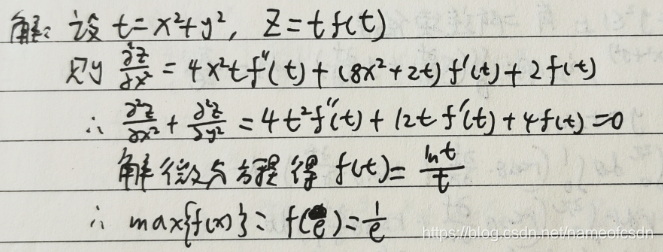 解: 设 t=x²+y², Z=tf(t)
则 ∂²z/∂x² = 4x²tf″(t)+(8x²+2t)f′(t)+2f(t)
∴ ∂²z/∂x² + ∂²z/∂y² = 4t²f″(t)+12tf′(t)+4f(t)=0
解微分方程得 f(t)= lnt/t
∴ max{f(x)}= f(e)= 1/e
https://blog.csdn.net/nameofcsdn